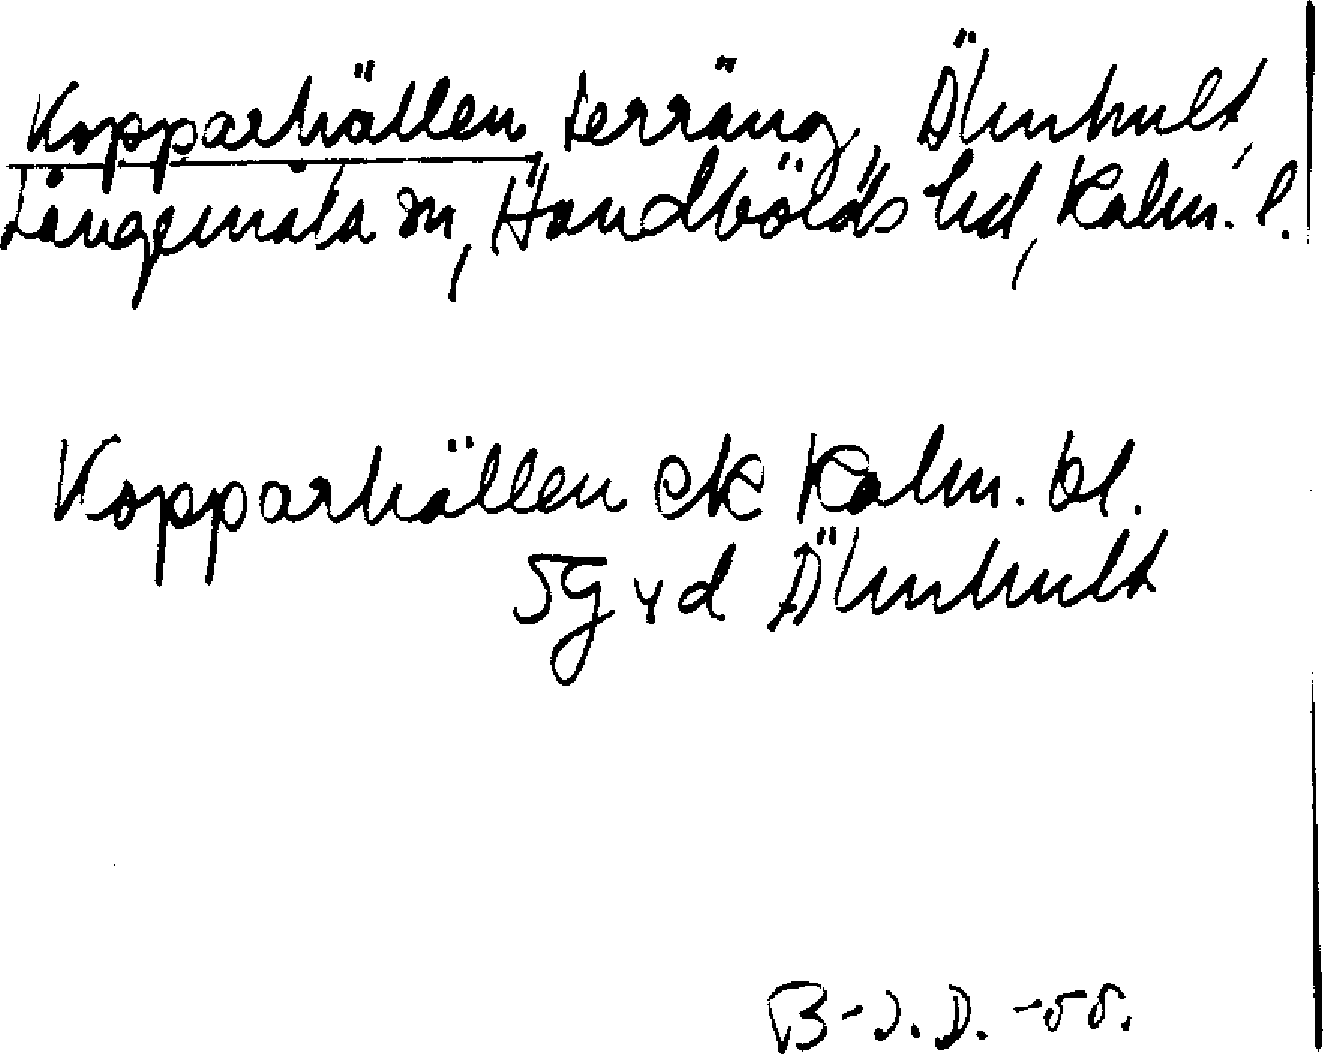 Kopparhällen, terräng, Älmhult,
Långemåla sn, Handbörds hd, Kalm. l.
Kopparhällen ek Kalm. bl.
5g vd Älmhult
B-J.D. -55.